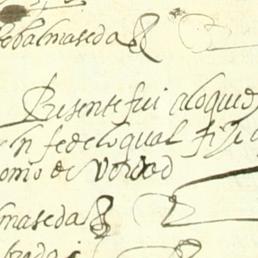 debalmaseda
Presente fui a loqued
en fe de lo qual fize
omo de Verdad
lmaseda